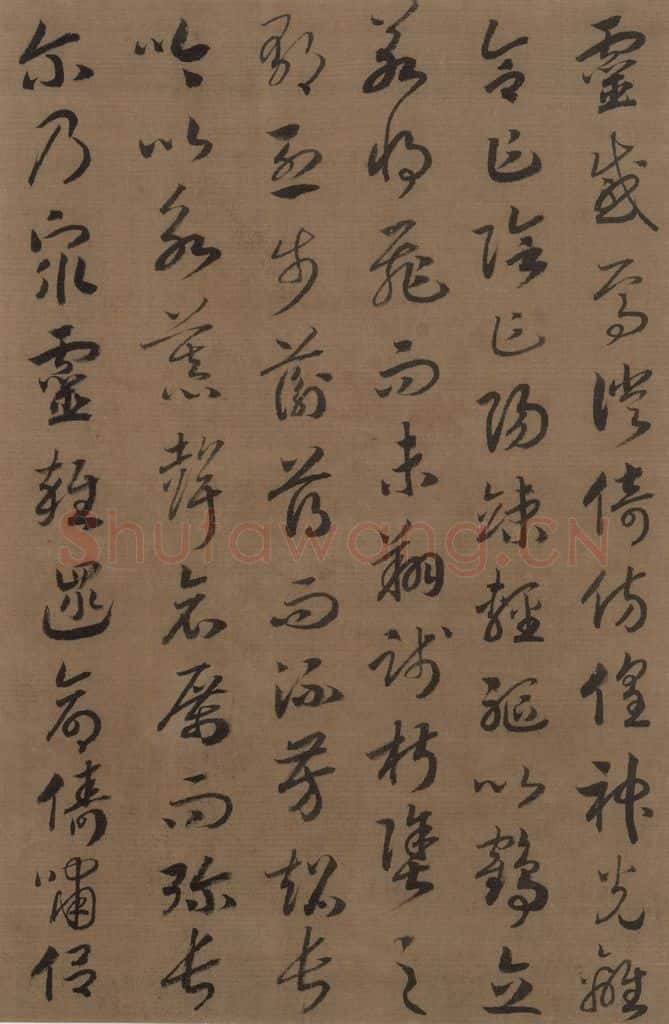 靈感焉徙倚仿偟神光離
合乍陰乍陽竦輕軀以鶴立
若將飛而未翔踐椒塗之
郁烈步蘅薄而流芳超長
吟以永慕聲哀厲而彌長
尔乃眾靈雜遝命儔嘯侶
Shufawang.CN